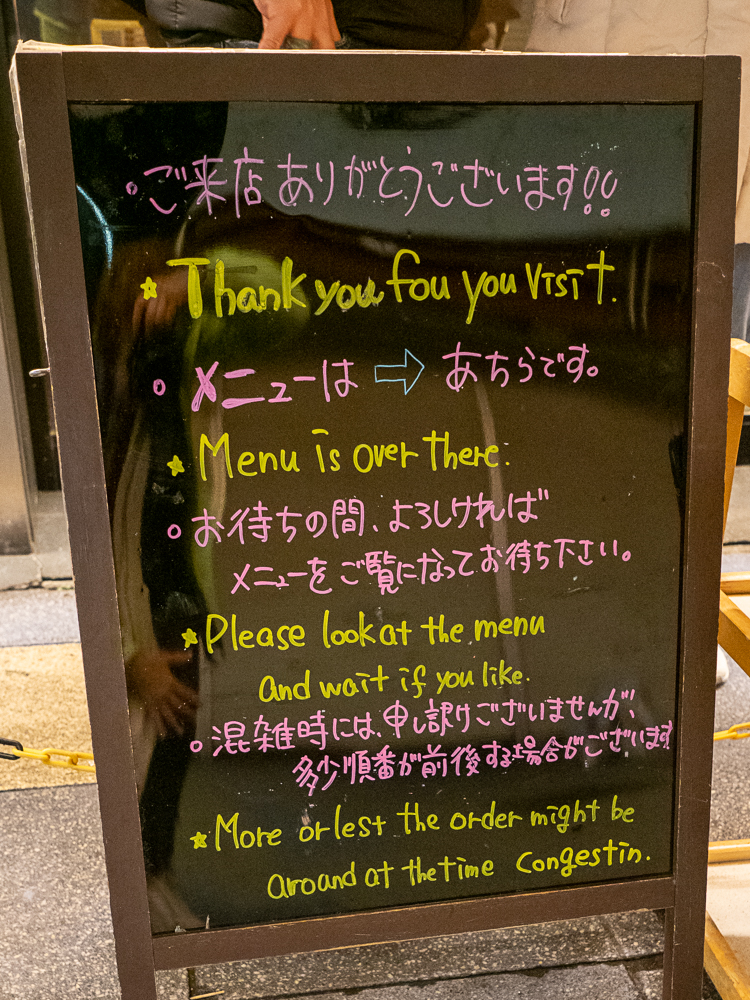 ・ご来店ありがとうございます!!
☆Thank you fou you visit.
○メニューは ⇨ あちらです。
☆Menu is over there.
○お待ちの間、よろしければ
メニューをご覧になってお待ち下さい。
☆Please look at the menu
and wait if you like.
○混雑時には、申し訳ございませんが、
多少順番が前後する場合がございます
☆More or lest the order might be
aroand at the time congestin.